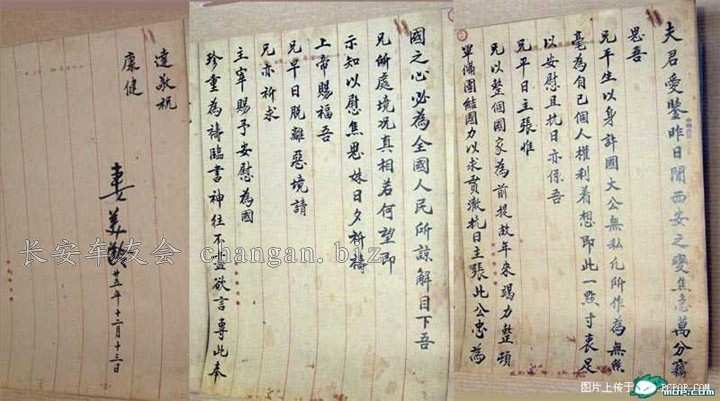 夫君愛鑒昨日聞西安之變焦急萬分竊
思吾
兄平生以身許國大公無私凡所作為無絲
毫為自己個人權利着想即此一點寸衷足
以安慰且抗日亦係吾
兄平日主張惟
兄以整個國家為前提故年來竭力整頓
軍備團結國力以求貫澈抗日主張此公忠為
國之心必為全國人民所諒解目下吾
兄所處境況真相若何望即
示知以慰焦思妹日夕祈禱
上帝賜福吾
兄早日脫離惡境請
兄亦祈求
主宰賜予安慰為國
珍重為禱臨書神往不盡欲言專此奉
達敬祝
康健
妻美齡
廿五年十二月十三日
长安车友会 changan.biz
图片上传于